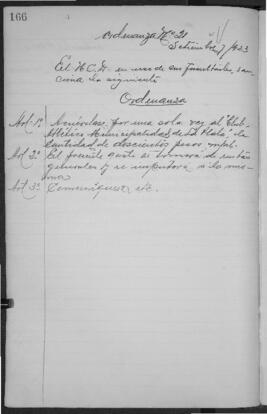 166
Ordenanza Nº 21
Setiembre 7/923
El H.C.D. en uso de sus facultades, san-
ciona la siguiente
Ordenanza
Art. 1º Acuérdase por una sola vez al "Club
Atlético Municipalidad de La Plata", la
cantidad de doscientos pesos m/n.
Art. 2º El gasto se tomará de rentas
generales y se imputará a la mis-
ma
Art 3º Comuníquese, etc.